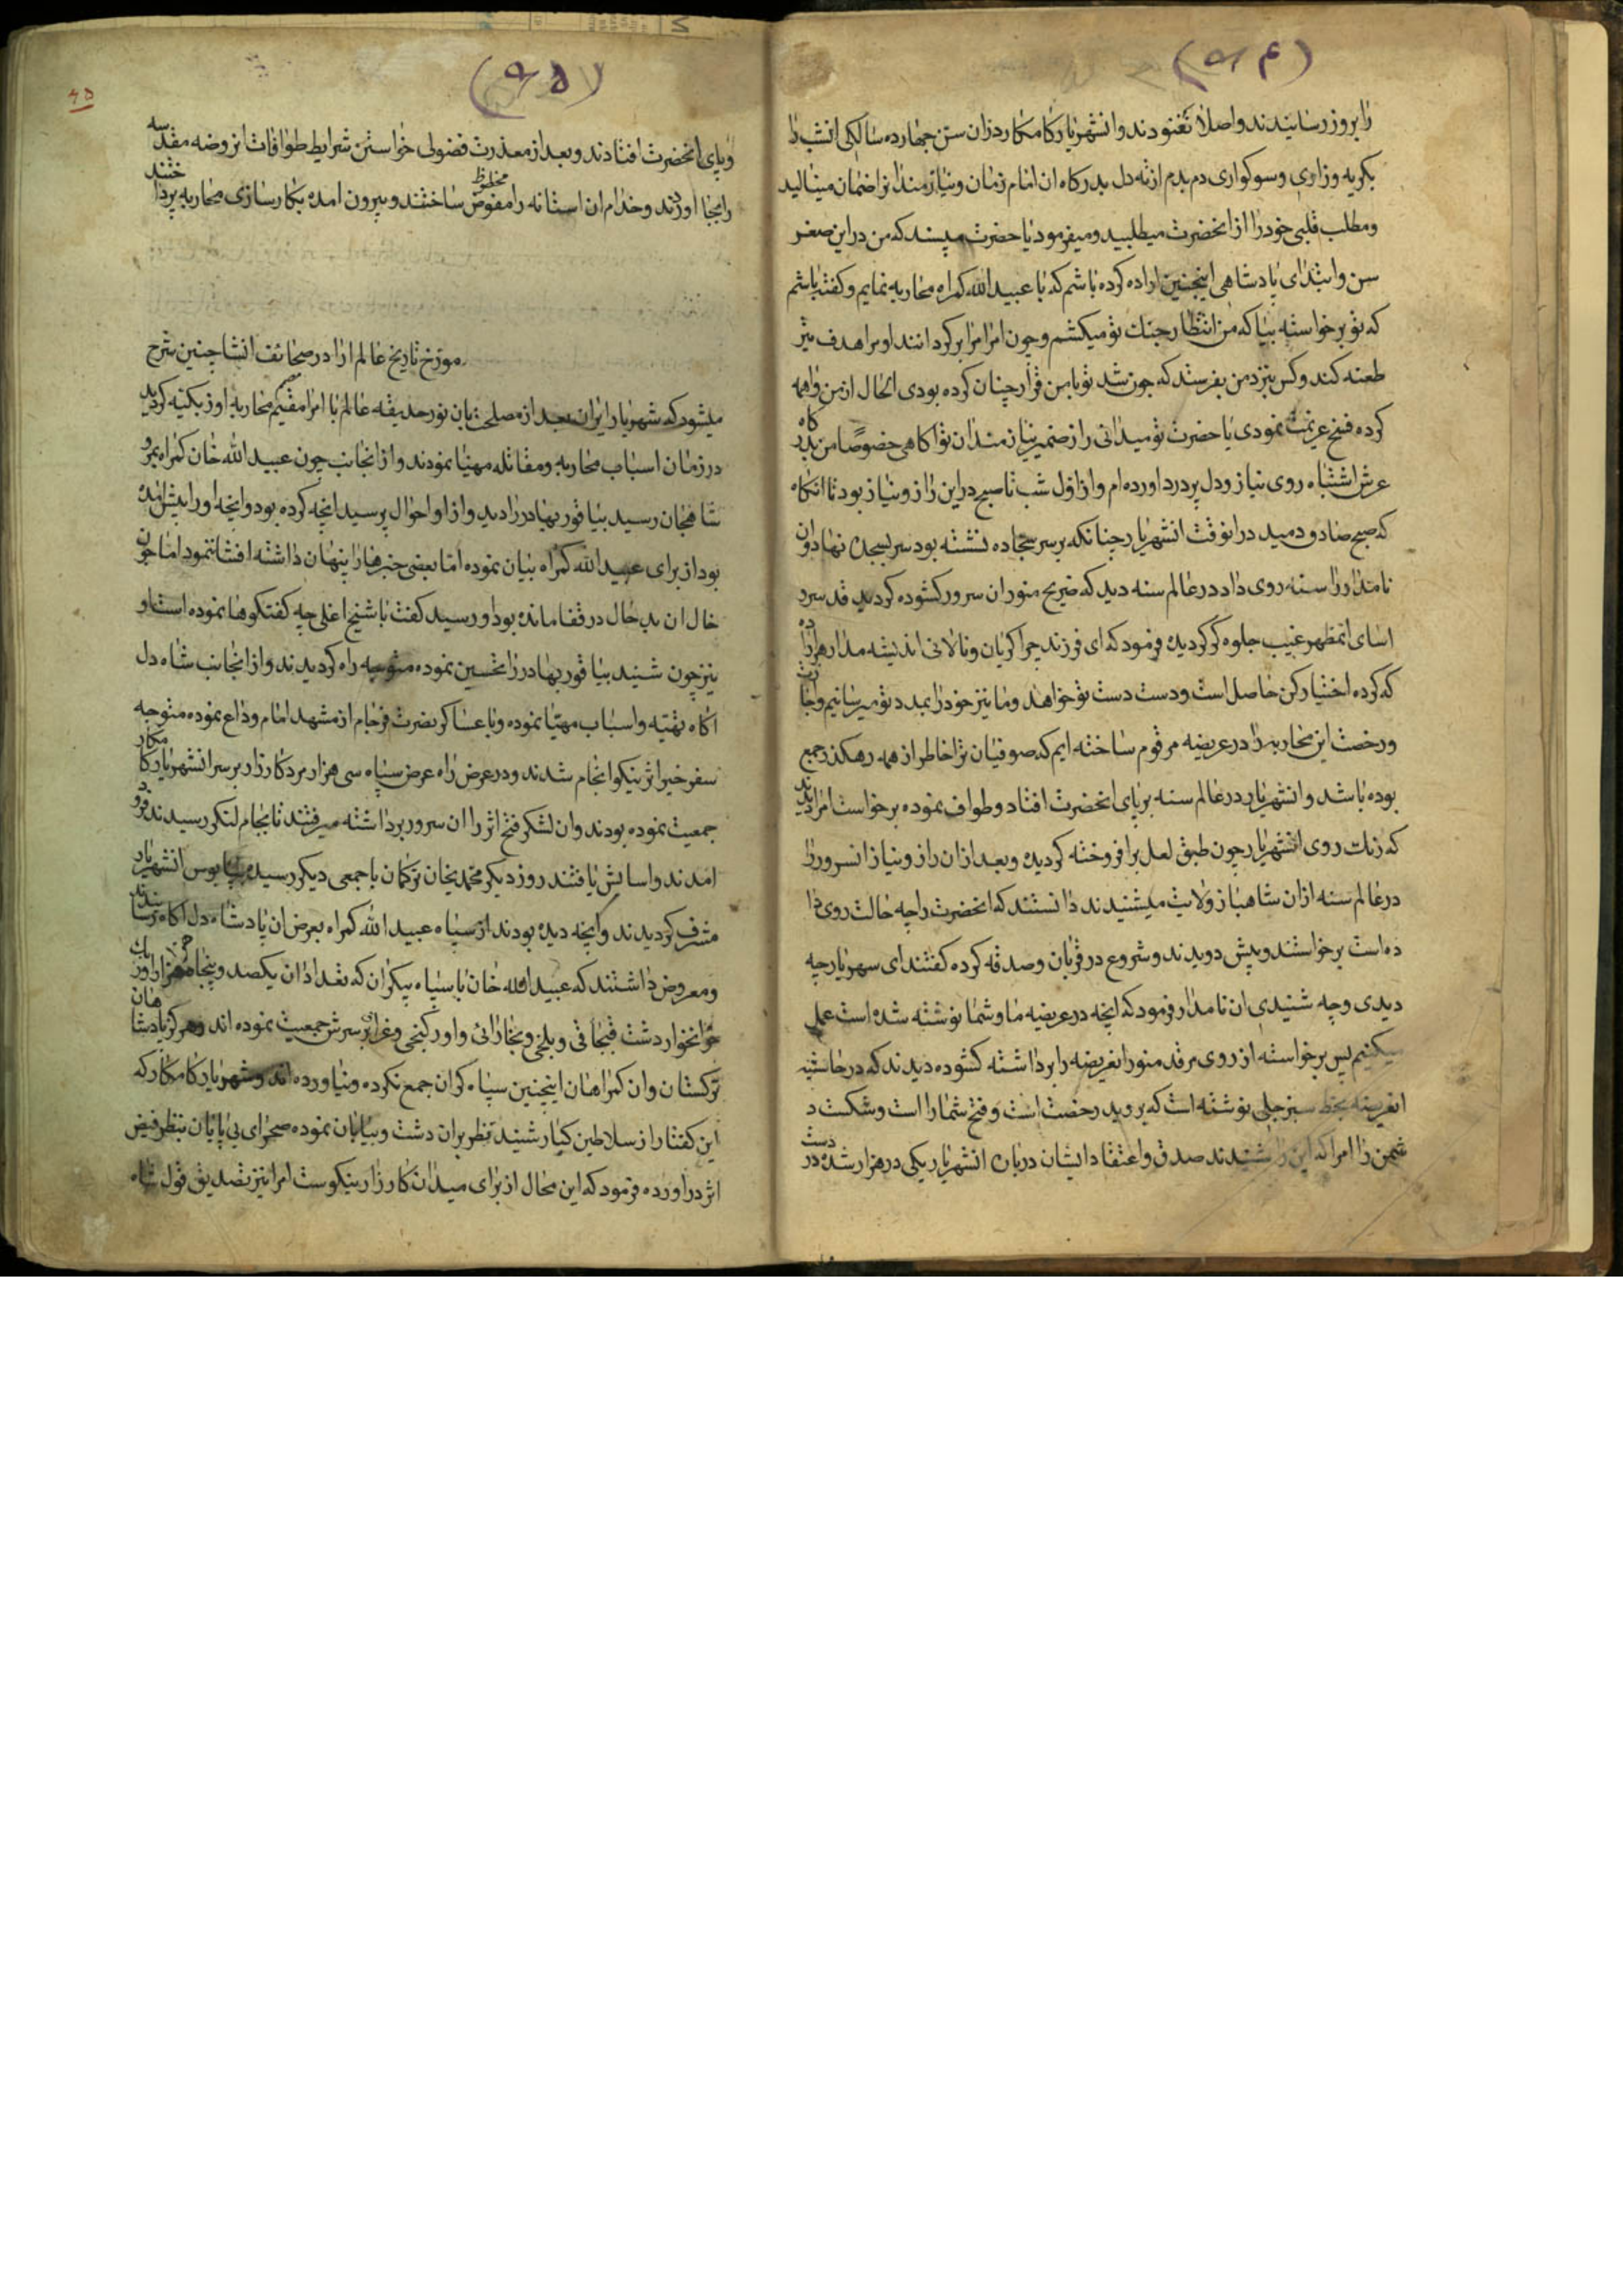 (۹۴)
را بروز رسانیدند و اصلا نغنودند و انشهریار کامکار دران سن چهارده سالکی انشب را
بکریه وزاری وسوکواری دم بدم از ته دل بدرکاه ان امام زمان و نیازمندان را ضمان مینالید
ومطلب قلبی خود را از انحضرت میطلبید ومیفرمود یا حضرت مپسند که من در این صغر
سن وابتدای پادشاهی اینچنین اراده کرده باشم که با عبیدالله کمراه محاربه نمایم وکفته باشم
که تو برخواسته بیا که من انتظار جنک تو میکشم وچون امرا مرا برکردانند او مرا هدف تیر
طعنه کند وکس بنزد من بفرستد که چون شد تو با من قرار چنان کرده بودی الحال از من واهمه
کرده فسخ عزیمت نمودی یا حضرت تو میدانی و از ضمیر نیازمندان تو اکاهی خصوصا من بدرکاه
عرش اشتباه روی نیاز ودل پر درد اورده ام واز اول شب تا صبح در این راز ونیاز بود تا انکاه
که صبح صادق دمید در انوقت انشهریار چنانکه بر سر سجاده نشسته بود سر بسجده نهاد وان
نامدار را سنه روی داد در عالم سنه دید که ضریح منور ان سرور کشوده کردید قد سرو
اسای انمظهر غیب جلوه کر کردیده فرمود که ای فرزند چرا کریان ونالانی اندیشه مدار هر اراده
که کرده اختیار کن حاصل است ودست دست تو خواهد وما نیز خود را بمدد تو میرسانیم واجازت
ورخصت این محاربه را در عریضه مرقوم ساخته ایم که صوفیان ترا خاطر از همه رهکذر جمع
بوده باشد وانشهریار در عالم سنه بر پای انحضرت افتاد وطواف نموده برخواست امرا دیدند
که رنک روی انشهریار چون طبق لعل بر افروخته کردیده وبعد ازان راز ونیاز انسرور را
در عالم سنه ازان شاهباز ولایت میشنیدند دانستند که انحضرت را چه حالت روی دا
ده است برخواستند وپیش دویدند وشروع در قربان وصدقه کرده کفتند ای شهریار چه
دیدی وچه شنیدی ان نامدار فرمود که انچه در عریضه ما وشما نوشته شده است عمل
میکنیم پس برخواسته از روی مرقد منور انعریضه را برداشته کشوده دیدند که در حاشیه
انعریضه بخط سبز جلی نوشته است که بروید رخصت است وفتح شما را است وشکست د
شمن را امرا که این را شنیدند صدق واعتقاد ایشان در باره انشهریار یکی در هزار شده در دست
(۹۵)
۴۵
وپای انحضرت افتادند وبعد از معذرت فضولی خواستن شرایط طوافات از روضه مقدسه
را بجا اوردند وخدام ان استانه را مفوض محظوظ ساختند وبیرون امده بکار سازی محاربه پرداختند
مورخ تاریخ عالم ارا در صحائف انشا چنین شرح
میشود که شهریار ایران بعد از مصلحت بان نور حدیقه عالم با امرا مقیم محاربه اوزبکیه کردید
در زمان اسباب محاربه ومقاتله مهیا نمودند واز انجانب چون عبیدالله خان کمراه بمرو
شاهجان رسید بیاقور بهادر را دید واز او احوال پرسید انچه کرده بود وانچه او را پیش امده
بود از برای عبیدالله کمراه بیان نموده اما بعضی خبرها را پنهان داشته افشا ننمود اما چون
خال ان بد حال در قفا مانده بود او رسید کفت با شیخ اغلی چه کفتکوها نموده است او
نیز چون شنید بیاقور بهادر را تحسین نموده متوجه راه کردیدند واز انجانب شاه دل
اکاه تهیه واسباب مهیا نموده وبا عساکر نصرت فرجام از مشهد امام وداع نموده متوجه
سفر خیر اثر نیکو انجام شدند ودر عرض راه عرض سپاه سی هزار مرد کارزار بر سر انشهریار کامکار
جمعیت نموده بودند وان لشکر فتح اثر را ان سرور برداشته میرفتند تا بجام لنکر رسیدند فرود
امدند واسایش یافتند روز دیکر محمدیخان ترکمان با جمعی دیکر رسیده بپابوس انشهریار
مشرف کردیدند وانچه دیده بودند از سپاه عبیدالله کمراه بعرض ان پادشاه دل اکاه رسانیدند
ومعروض داشتند که عبیدالله خان با سپاه بیکران که تعداد ان یکصد وپنجاه هزار اوزبک
خوانخوار دشت قبچاقی وبلخی وبخارائی واورکنجی وغرائب بر سرش جمعیت نموده اند وهرکز پادشاهان
ترکستان وان کمراهان اینچنین سپاه کران جمع نکرده ونیاورده اند وشهریار کامکار که
این کفتار از سلاطین کبار شنید نظر بران دشت وبیابان نموده صحرای بی پایان بنظر فیض
اثر دراورده فرمود که این محال از برای میدان کارزار نیکوست امرا نیز تصدیق قول شاه